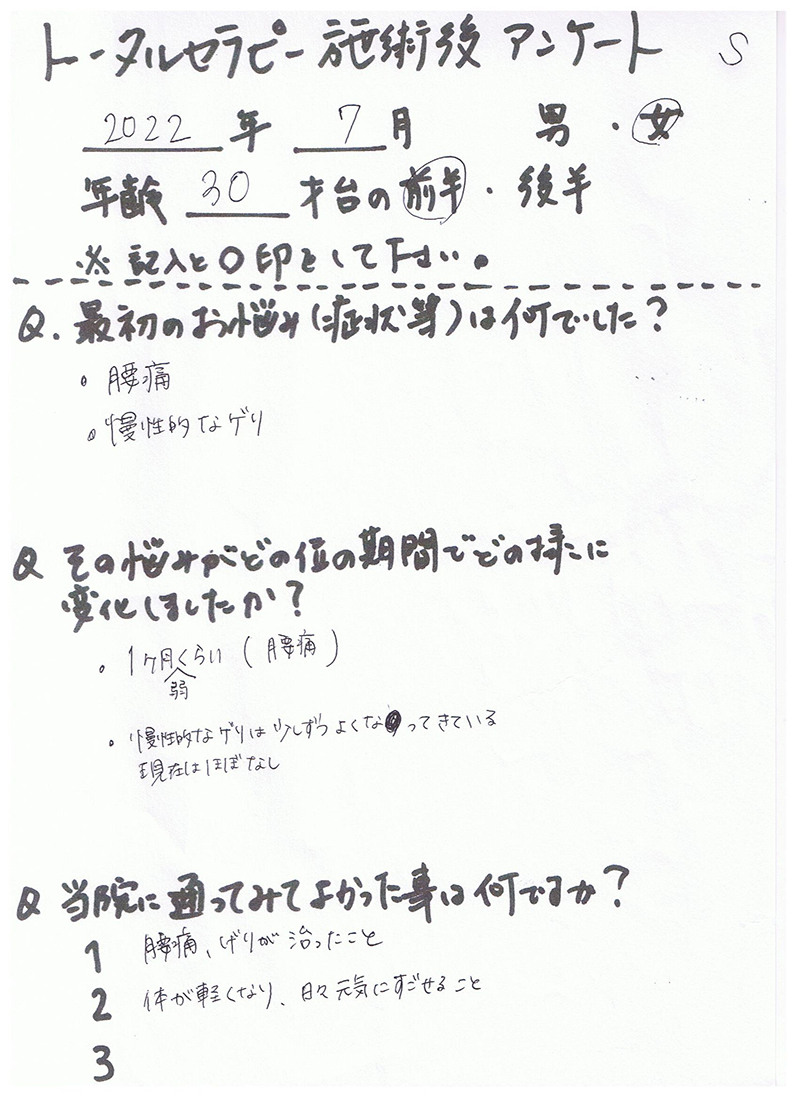 トータルセラピー施術後 アンケート S
2022 年 7 月 男・女
年齢 30 才台の 前半・後半
※ 記入と〇印をして下さい。
Q. 最初のお悩み(症状等)は何でした?
・腰痛
・慢性的なゲリ
Q その悩みがどの位の期間でどの様に
変化しましたか?
・1ヶ月弱くらい(腰痛)
・慢性的なゲリは少しずつよくなってきている
現在はほぼなし
Q 当院に通ってみてよかった事は何ですか?
1 腰痛、げりが治ったこと
2 体が軽くなり、日々元気にすごせること
3